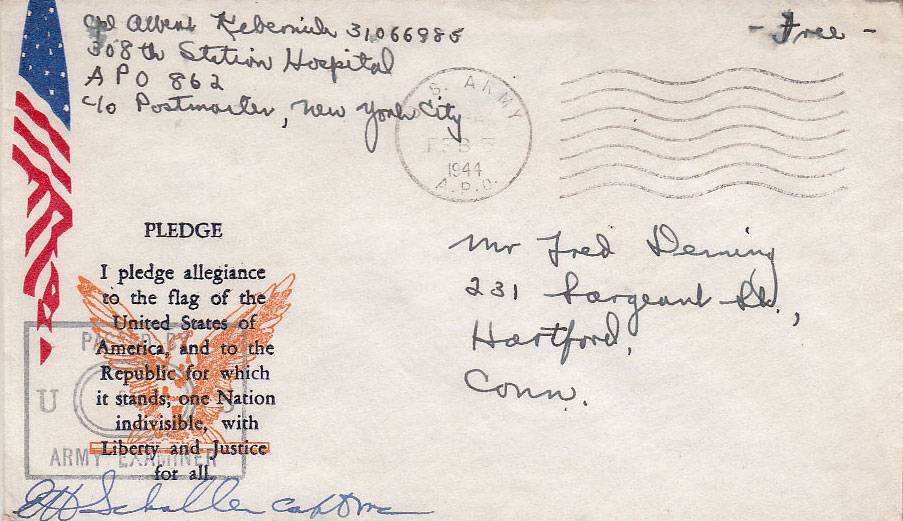 Cpl Albert Kebernich 31066985
308th Station Hospital
APO 862
c/o Postmaster, New York City
- Free -
U.S. ARMY
FEB 5
1944
A.P.O.
Mr Fred Deming
231 Sargeant St.,
Hartford,
Conn.
PLEDGE
I pledge allegiance
to the flag of the
United States of
America, and to the
Republic for which
it stands; one Nation
indivisible, with
Liberty and Justice
for all.
PASSED BY
U S
ARMY EXAMINER
Schaller Capt MC